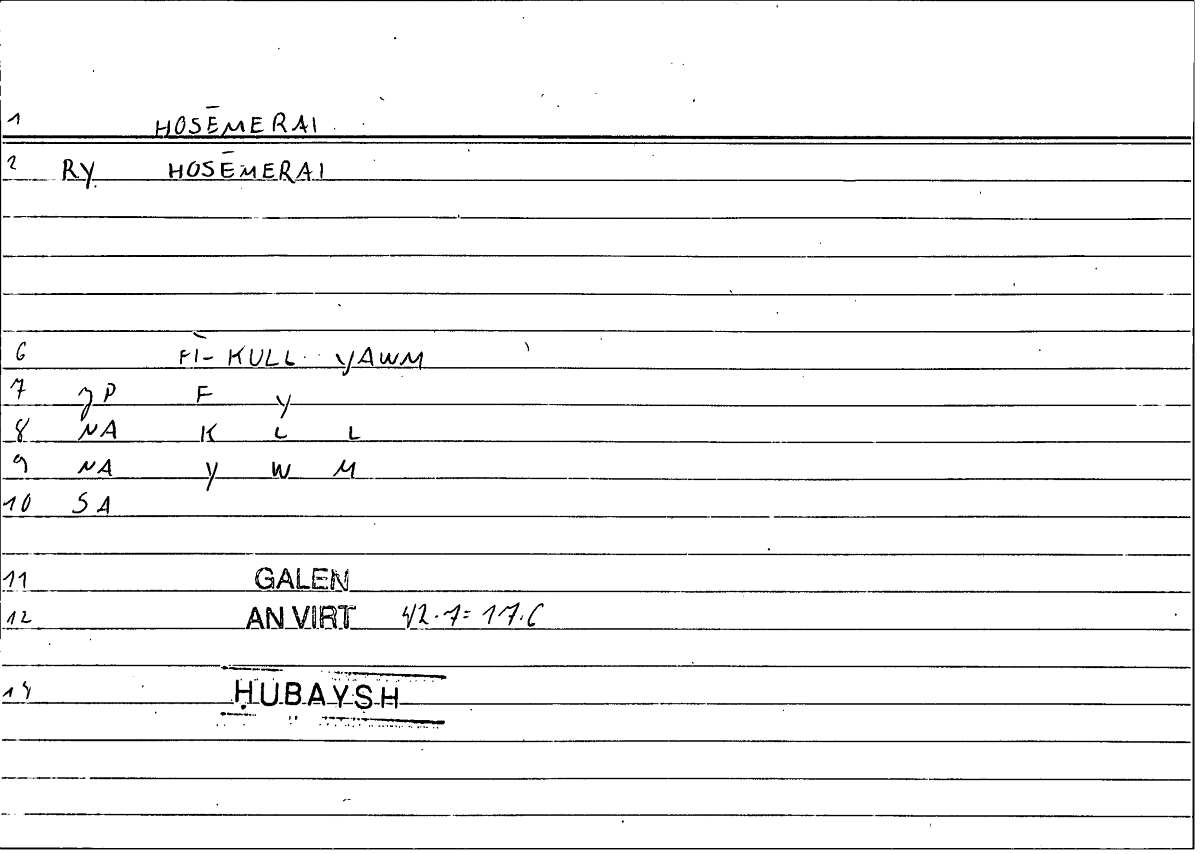 1 HOSĒMERAI
2 RY HOSĒMERAI
6 FĪ- KULL YAWM
7 ȝP F Y
8 NA K L L
9 NA Y W M
10 SA
11 GALEN
12 AN VIRT 42.7= 17.6
14 ḤUBAYSH